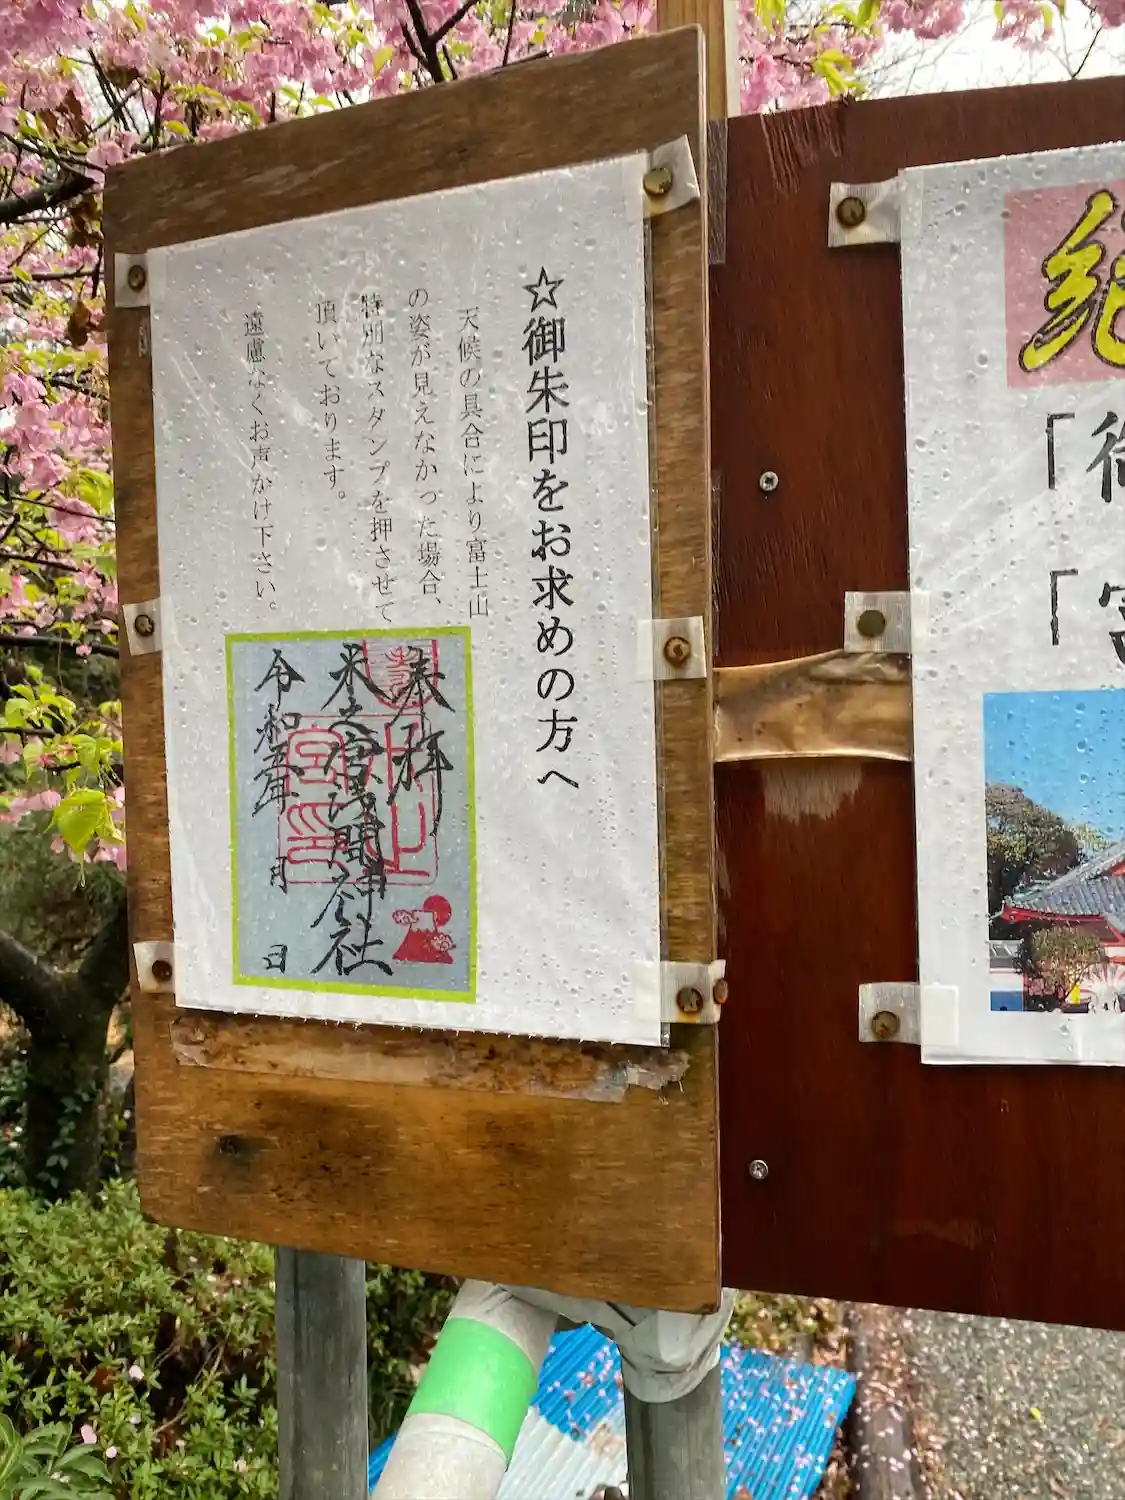 ☆御朱印をお求めの方へ
天候の具合により富士山
の姿が見えなかった場合、
特別なスタンプを押させて
頂いております。
遠慮なくお声かけ下さい。
奉拝
米之宮浅間神社
令和五年 月 日
「御
「宮